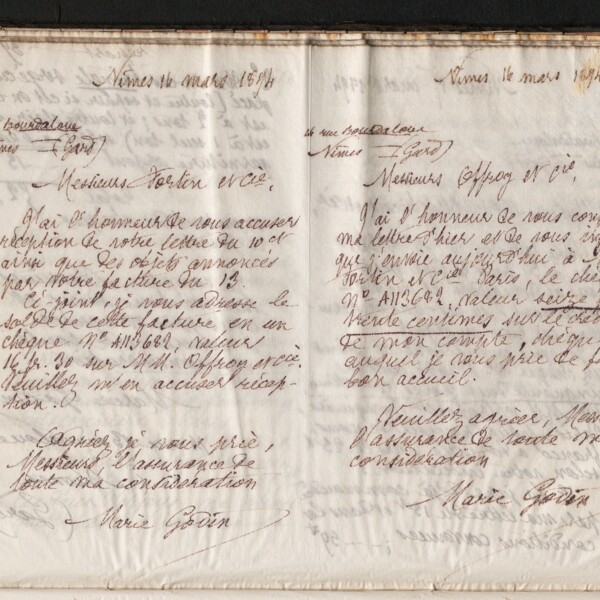 Nîmes 16 mars 1894
Bourdaloue
(Gard)
Messieurs Fortin et Cie,
J'ai l'honneur de vous accuser
réception de votre lettre du 10 ct
ainsi que des objets annoncés
par votre facture du 13.
Ci joint, je vous adresse le
solde de cette facture en un
chèque No A113682, valeur
16 fr. 30 sur M.M. Offroy et Cie.
Veuillez m'en accuser récep-
tion.
Agréez je vous prie,
Messieurs, l'assurance de
toute ma considération
Marie Godin
Nîmes 16 mars 1894
rue Bourdaloue
Nîmes (Gard)
Messieurs Offroy et Cie,
J'ai l'honneur de vous
ma lettre d'hier et de vous
que j'envoie aujourd'hui à
Fortin et Cie Paris, le
No A113682, valeur seize
trente centimes sur le
de mon compte, chèque
auquel je vous prie de
bon accueil.
Veuillez agréer,
l'assurance de toute
considération
Marie Godin